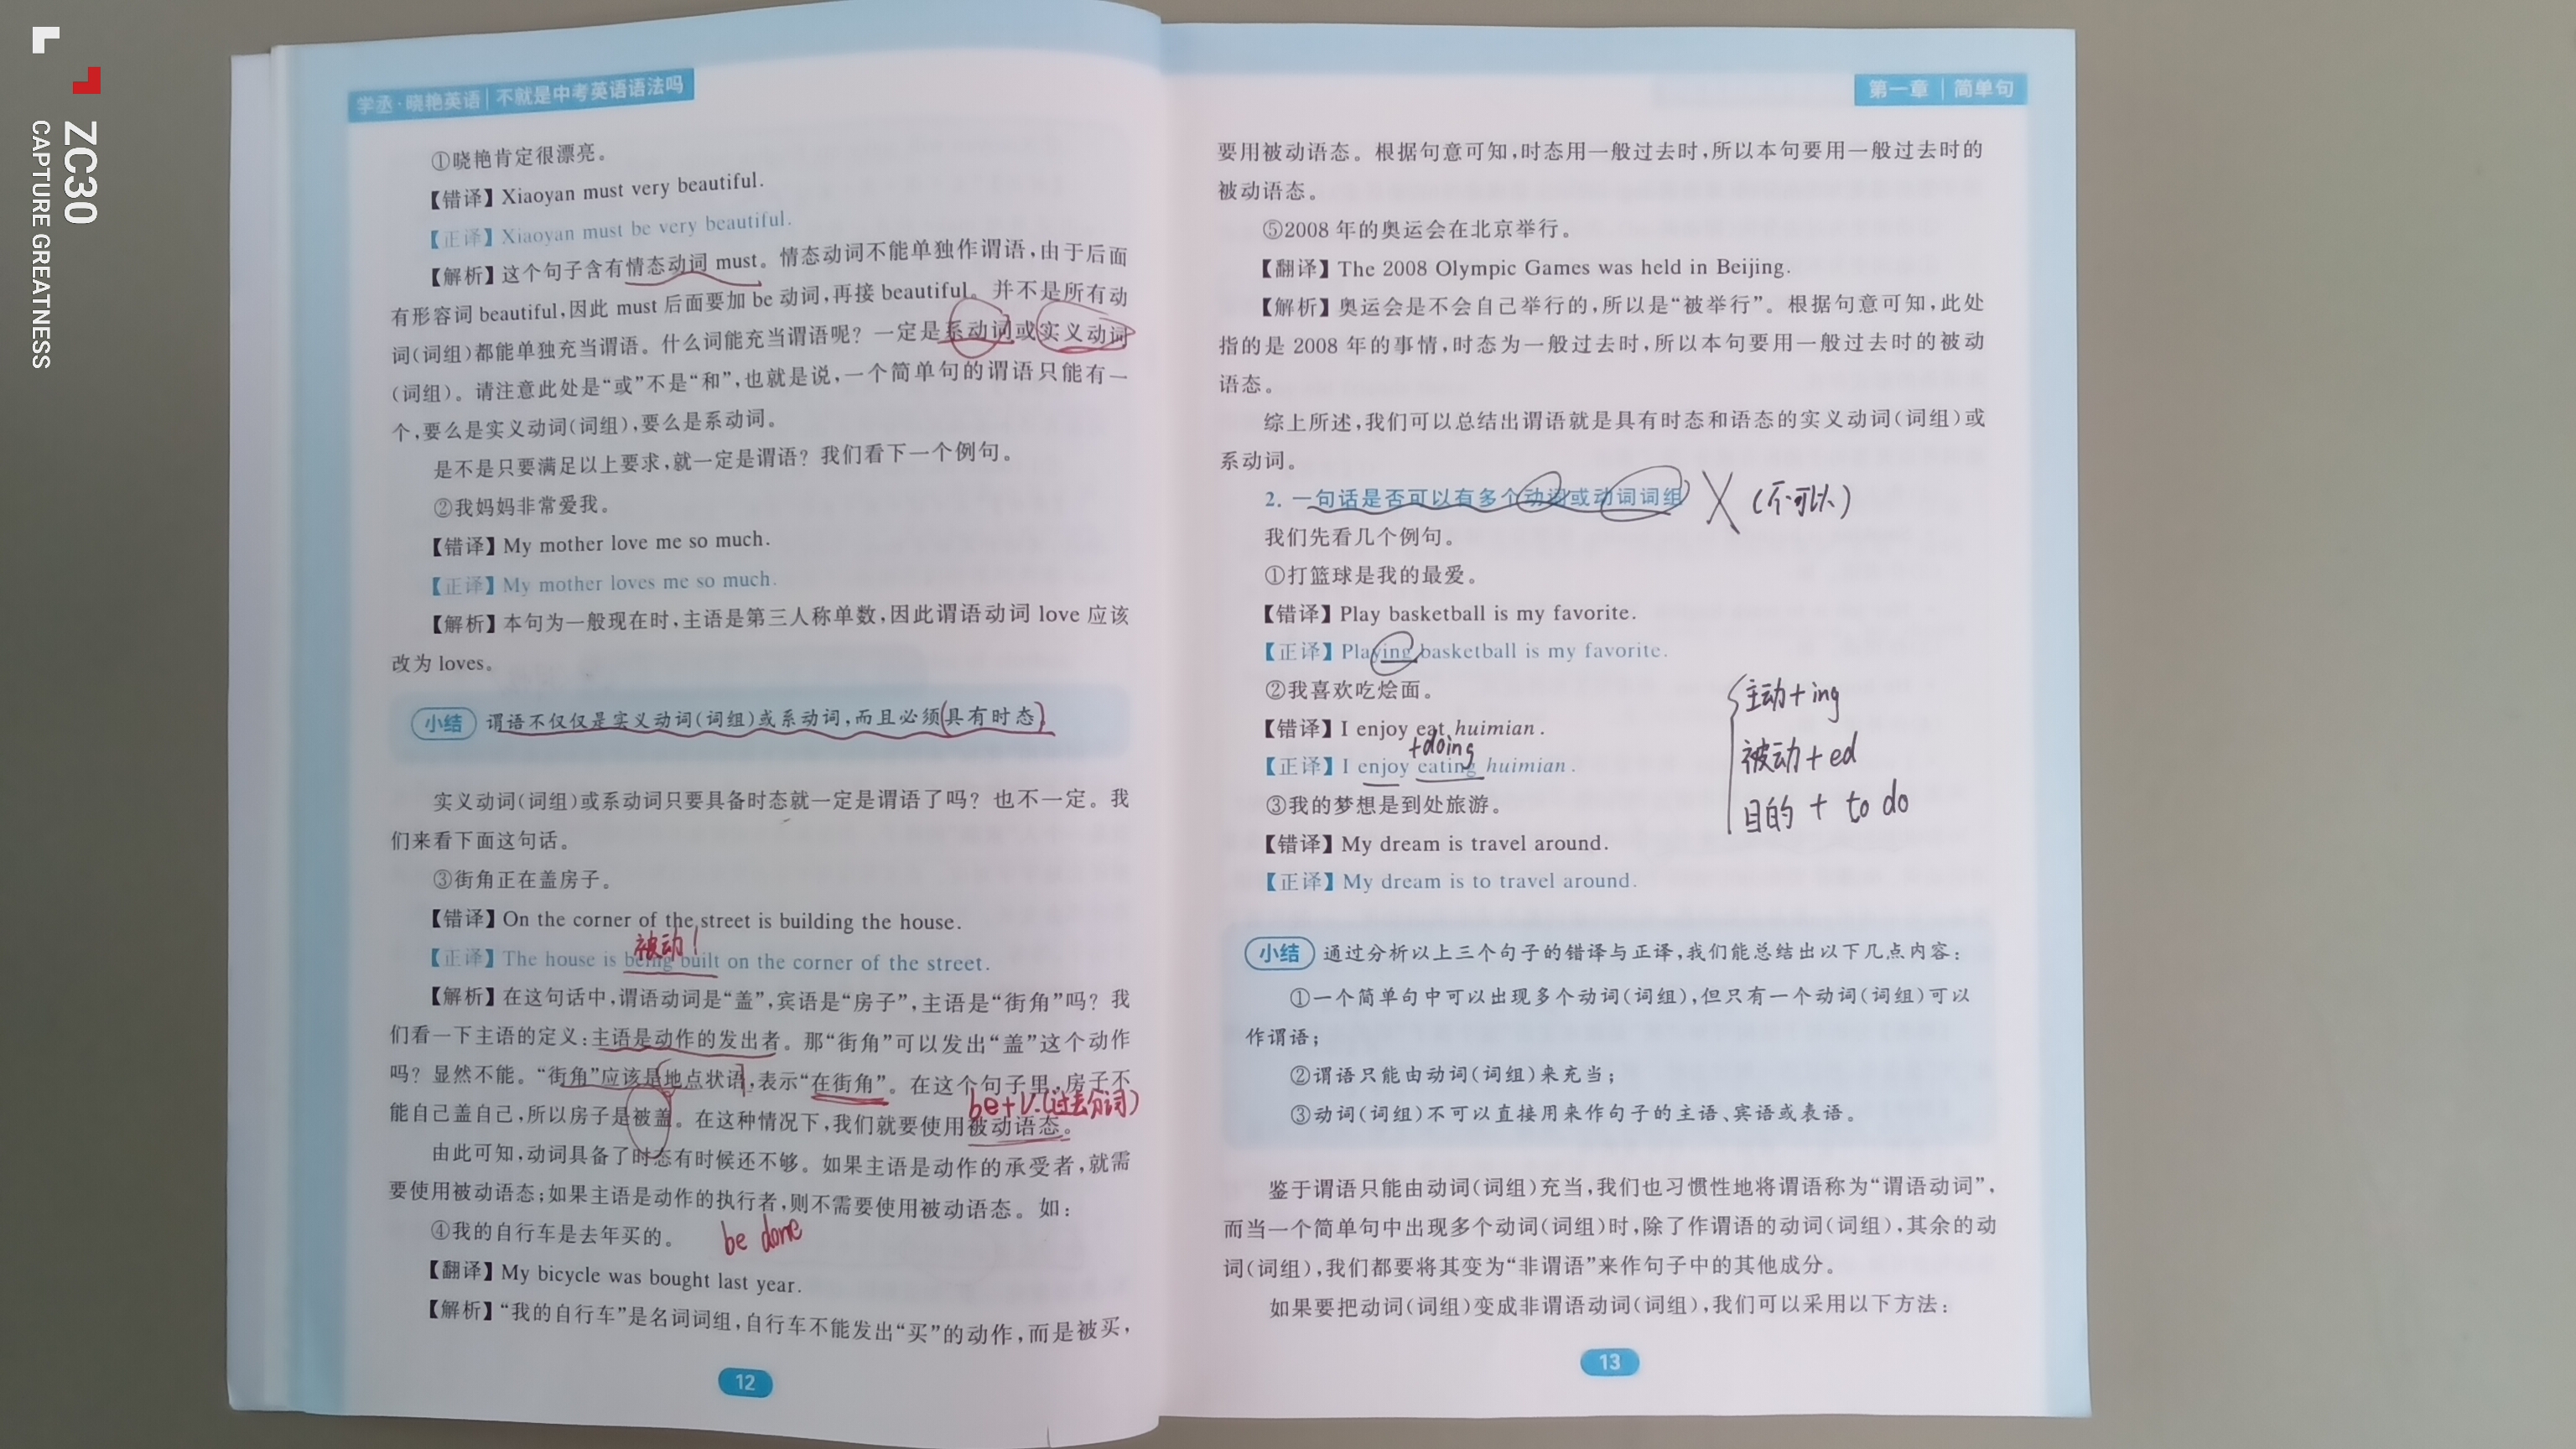 ZC30
CAPTURE GREATNESS
学丞·晓艳英语|不就是中考英语语法吗
①晓艳肯定很漂亮。
【错译】Xiaoyan must very beautiful.
【正译】Xiaoyan must be very beautiful.
【解析】这个句子含有情态动词 must。情态动词不能单独作谓语,由于后面
有形容词 beautiful,因此 must 后面要加 be 动词,再接 beautiful。并不是所有动
词(词组)都能单独充当谓语。什么词能充当谓语呢？一定是系动词或实义动词
(词组)。请注意此处是“或”不是“和”,也就是说,一个简单句的谓语只能有一
个,要么是实义动词(词组),要么是系动词。
是不是只要满足以上要求,就一定是谓语？我们看下一个例句。
②我妈妈非常爱我。
【错译】My mother love me so much.
【正译】My mother loves me so much.
【解析】本句为一般现在时,主语是第三人称单数,因此谓语动词 love 应该
改为 loves。
小结 谓语不仅仅是实义动词(词组)或系动词,而且必须(具有时态)
实义动词(词组)或系动词只要具备时态就一定是谓语了吗？也不一定。我
们来看下面这句话。
③街角正在盖房子。
【错译】On the corner of the street is building the house.
被动!
【正译】The house is being built on the corner of the street.
【解析】在这句话中,谓语动词是“盖”,宾语是“房子”,主语是“街角”吗？我
们看一下主语的定义:主语是动作的发出者。那“街角”可以发出“盖”这个动作
吗？显然不能。“街角”应该是地点状语,表示“在街角”。在这个句子里,房子不
be+V.(过去分词)
能自己盖自己,所以房子是被盖。在这种情况下,我们就要使用被动语态。
由此可知,动词具备了时态有时候还不够。如果主语是动作的承受者,就需
要使用被动语态;如果主语是动作的执行者,则不需要使用被动语态。如:
④我的自行车是去年买的。 be done
【翻译】My bicycle was bought last year.
【解析】“我的自行车”是名词词组,自行车不能发出“买”的动作,而是被买,
12
第一章|简单句
要用被动语态。根据句意可知,时态用一般过去时,所以本句要用一般过去时的
被动语态。
⑤2008 年的奥运会在北京举行。
【翻译】The 2008 Olympic Games was held in Beijing.
【解析】奥运会是不会自己举行的,所以是“被举行”。根据句意可知,此处
指的是 2008 年的事情,时态为一般过去时,所以本句要用一般过去时的被动
语态。
综上所述,我们可以总结出谓语就是具有时态和语态的实义动词(词组)或
系动词。
2. 一句话是否可以有多个动词或动词词组 X (不可以)
我们先看几个例句。
①打篮球是我的最爱。
【错译】Play basketball is my favorite.
【正译】Playing basketball is my favorite.
②我喜欢吃烩面。
【错译】I enjoy eat huimian.
+doing
【正译】I enjoy eating huimian.
③我的梦想是到处旅游。
【错译】My dream is travel around.
【正译】My dream is to travel around.
主动+ing
被动+ed
目的 + to do
小结 通过分析以上三个句子的错译与正译,我们能总结出以下几点内容:
①一个简单句中可以出现多个动词(词组),但只有一个动词(词组)可以
作谓语;
②谓语只能由动词(词组)来充当;
③动词(词组)不可以直接用来作句子的主语、宾语或表语。
鉴于谓语只能由动词(词组)充当,我们也习惯性地将谓语称为“谓语动词”,
而当一个简单句中出现多个动词(词组)时,除了作谓语的动词(词组),其余的动
词(词组),我们都要将其变为“非谓语”来作句子中的其他成分。
如果要把动词(词组)变成非谓语动词(词组),我们可以采用以下方法:
13